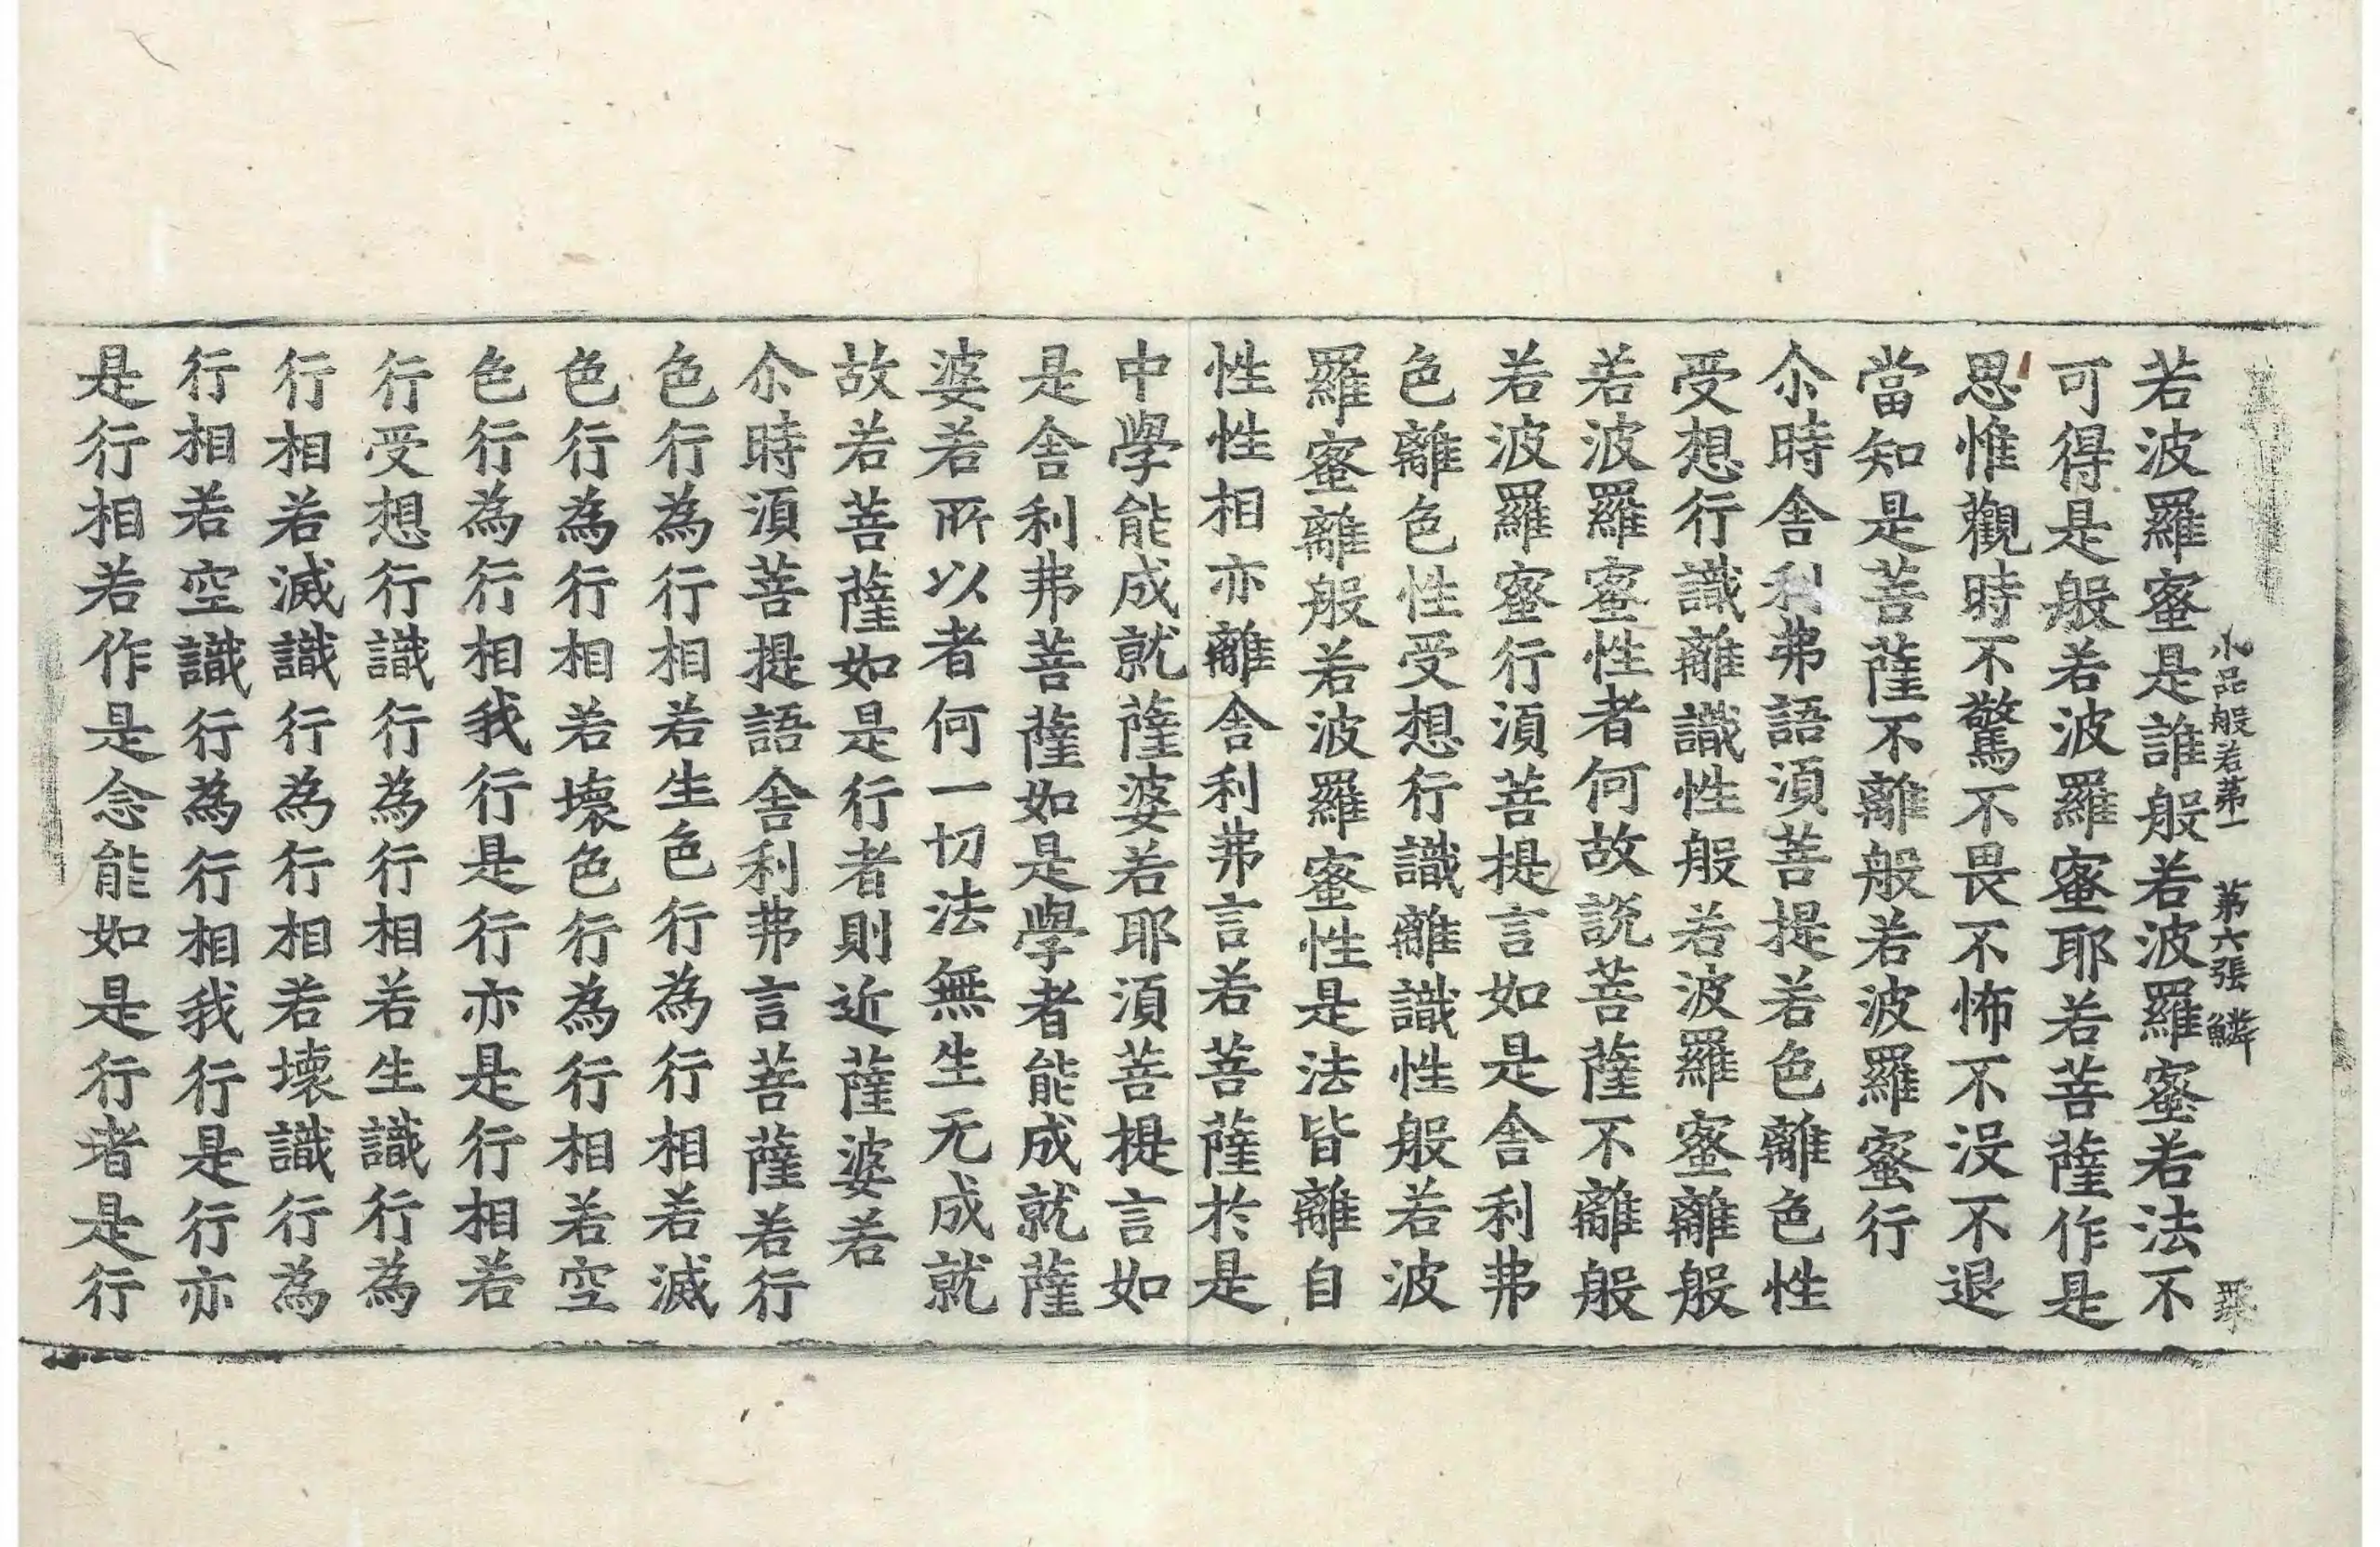 小品般若第一 第六張 鱗
若波羅蜜是誰般若波羅蜜若法不
可得是般若波羅蜜耶若菩薩作是
思惟觀時不驚不畏不怖不没不退
當知是菩薩不離般若波羅蜜行
尒時舎利弗語湏菩提若色離色性
受想行識離識性般若波羅蜜離般
若波羅蜜性者何故説菩薩不離般
若波羅蜜行湏菩提言如是舎利弗
色離色性受想行識離識性般若波
羅蜜離般若波羅蜜性是法皆離自
性性相亦離舎利弗言若菩薩於是
中學能成就薩婆若耶湏菩提言如
是舎利弗菩薩如是學者能成就薩
婆若所以者何一切法無生无成就
故若菩薩如是行者則近薩婆若
尒時湏菩提語舎利弗言菩薩若行
色行為行相若生色行為行相若滅
色行為行相若壊色行為行相若空
色行為行相我行是行亦是行相若
行受想行識行為行相若生識行為
行相若滅識行為行相若壊識行為
行相若空識行為行相我行是行亦
是行相若作是念能如是行者是行